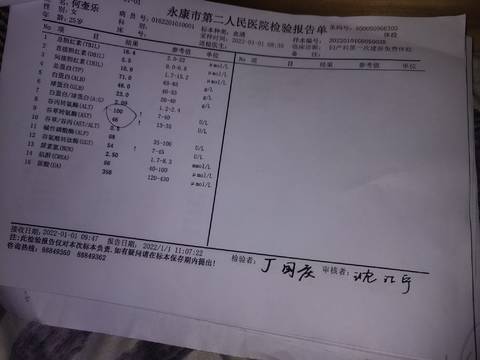 永康市第二人民医院检验报告单
性 别: 女
年 龄: 25岁
病 员 号: 0182201010001
科 别:
床 号:
标本种类: 血清
采样时间: 2022-01-01 08:35
送检医生:
样本编号: 20220101G0090028
临床诊断: 妇产科第一次建册免费体检
备 注:
No 项 目 结果 参考值 单位
No 项 目 结果 参考值 单位
1 总胆红素(TBIL) 16.4 2.0-22 μmol/L
2 直接胆红素(DBIL) μmol/L
3 间接胆红素 10.9 1.7-15.2 μmol/L
4 总蛋白(TP) 71.0 g/L
5 白蛋白(ALB) 48.0 g/L
6 球蛋白 23.0 20-40 g/L
7 白蛋白/球蛋白(A:G) 2.09 1.2-2.4
8 谷丙转氨酶(ALT) 100 ↑ 7-40 U/L
9 谷草转氨酶(AST) 46 ↑ 13-35 U/L
10 谷草/谷丙(AST/ALT) 0.5
11 碱性磷酸酶(ALP) 68 35-100 U/L
12 谷氨酰转肽酶(GGT) 54 ↑ 7-45 U/L
13 尿素氮(BUN) 2.50 1.7-8.3 mmol/L
14 肌酐(CREA) 56 40-100 μmol/L
16 尿酸(UA) 358 120-430 μmol/L
接收日期: 2022-01-01 09:47 报告日期: 2022/1/1 11:07:22
检验者: 丁国庆 审核者:
注:此检验报告仅对本次标本负责,如有疑问请在标本保存期内提出!
咨询热线: 88849360 88849362